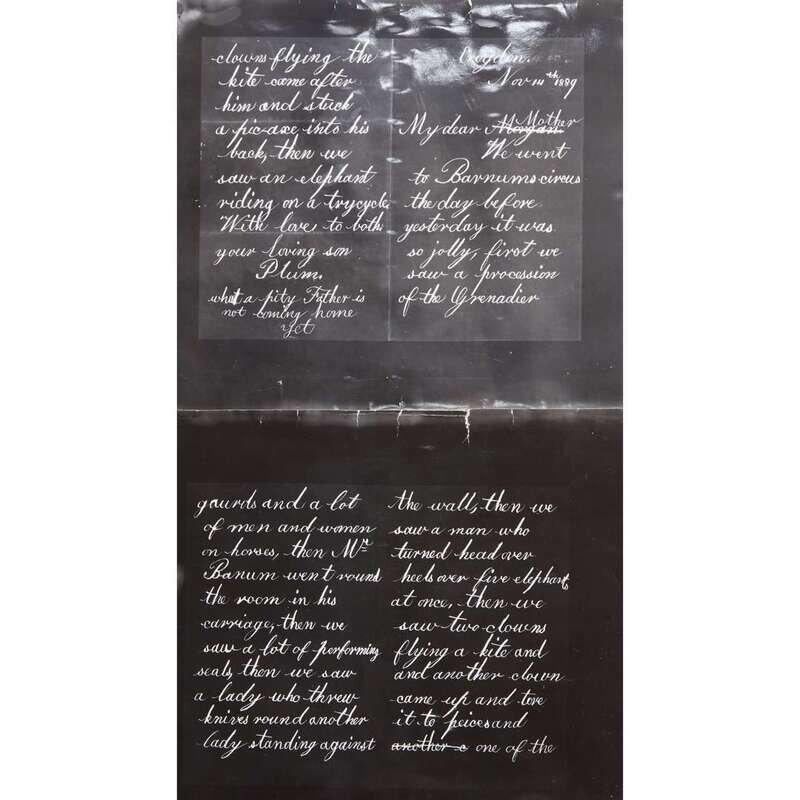 Croydon.
Nov 14th 1889
My dear Mother
We went
to Barnums circus
the day before
yesterday it was
so jolly, first we
saw a procession
of the Grenadier
gaurds and a lot
of men and women
on horses, then Mr
Banum went round
the room in his
carriage, then we
saw a lot of performing
seals, then we saw
a lady who threw
knives round another
lady standing against
the wall, then we
saw a man who
turned head over
heels over five elephants
at once, then we
saw two clowns
flying a kite and
and another clown
came up and tore
it to peices and
another c one of the
clowns flying the
kite came after
him and stuck
a pic-axe into his
back, then we
saw an elephant
riding on a trycycle.
With love to both
your loving son
Plum.
what a pity Father is
not coming home
yet